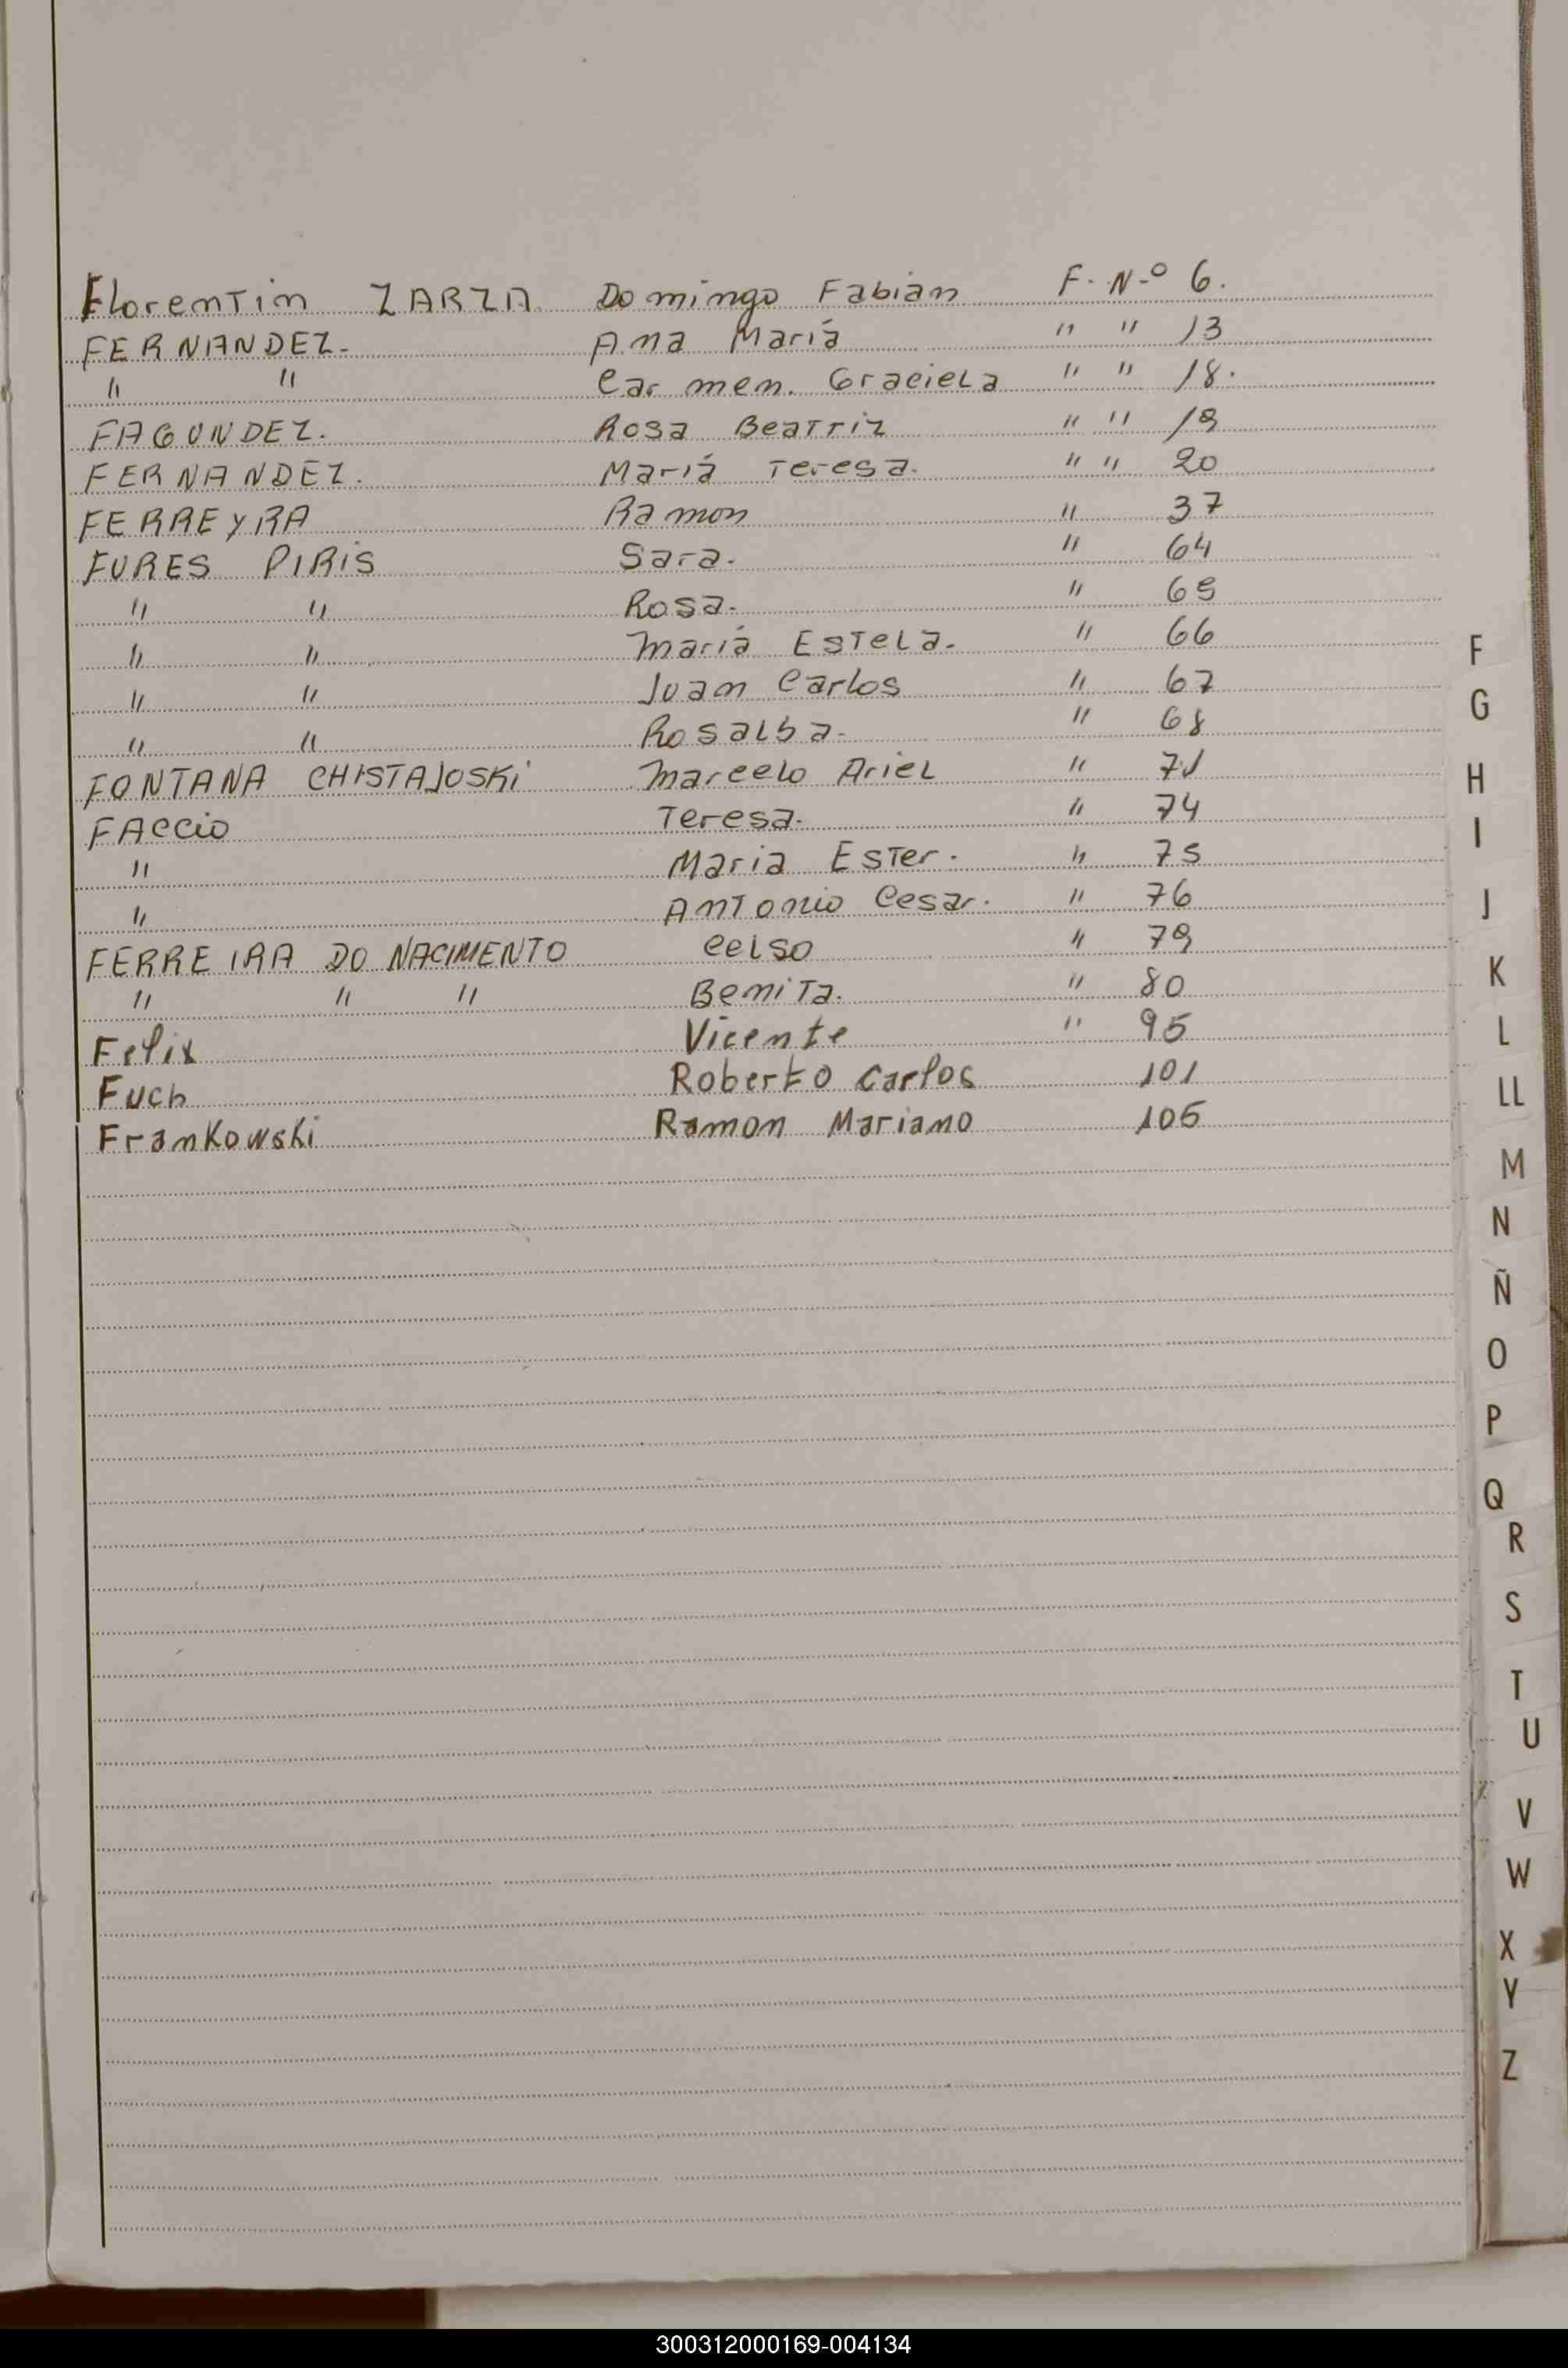 Florentin ZARZA Domingo Fabian F. Nº 6.
FERNANDEZ. Ana María " " 13
" " Carmen. Graciela " " 18.
FAGUNDEZ. Rosa Beatriz " " 19
FERNANDEZ. María Teresa. " " 20
FERREYRA Ramon " 37
FURES PIRIS Sara. " 64
" " Rosa. " 65
" " María Estela. " 66
" " Juan Carlos " 67
" " Rosalba. " 68
FONTANA CHISTAJOSKI Marcelo Ariel " 71
FAccio Teresa. " 74
" Maria Ester. " 75
" Antonio Cesar. " 76
FERREIRA DO NACIMENTO Celso " 79
" " " Benita. " 80
Felix Vicente " 95
Fuch Roberto Carlos 101
Frankowski Ramon Mariano 105
F
G
H
I
J
K
L
LL
M
N
Ñ
O
P
Q
R
S
T
U
V
W
X
Y
Z
300312000169-004134